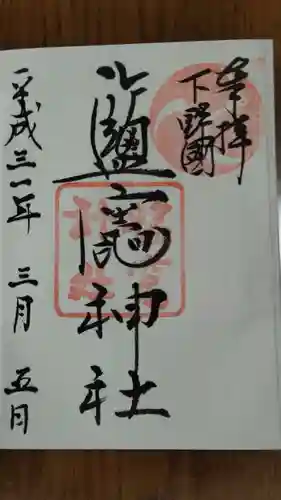 奉拝
下野國
鹽竈神社
平成三十一年 三月 五日